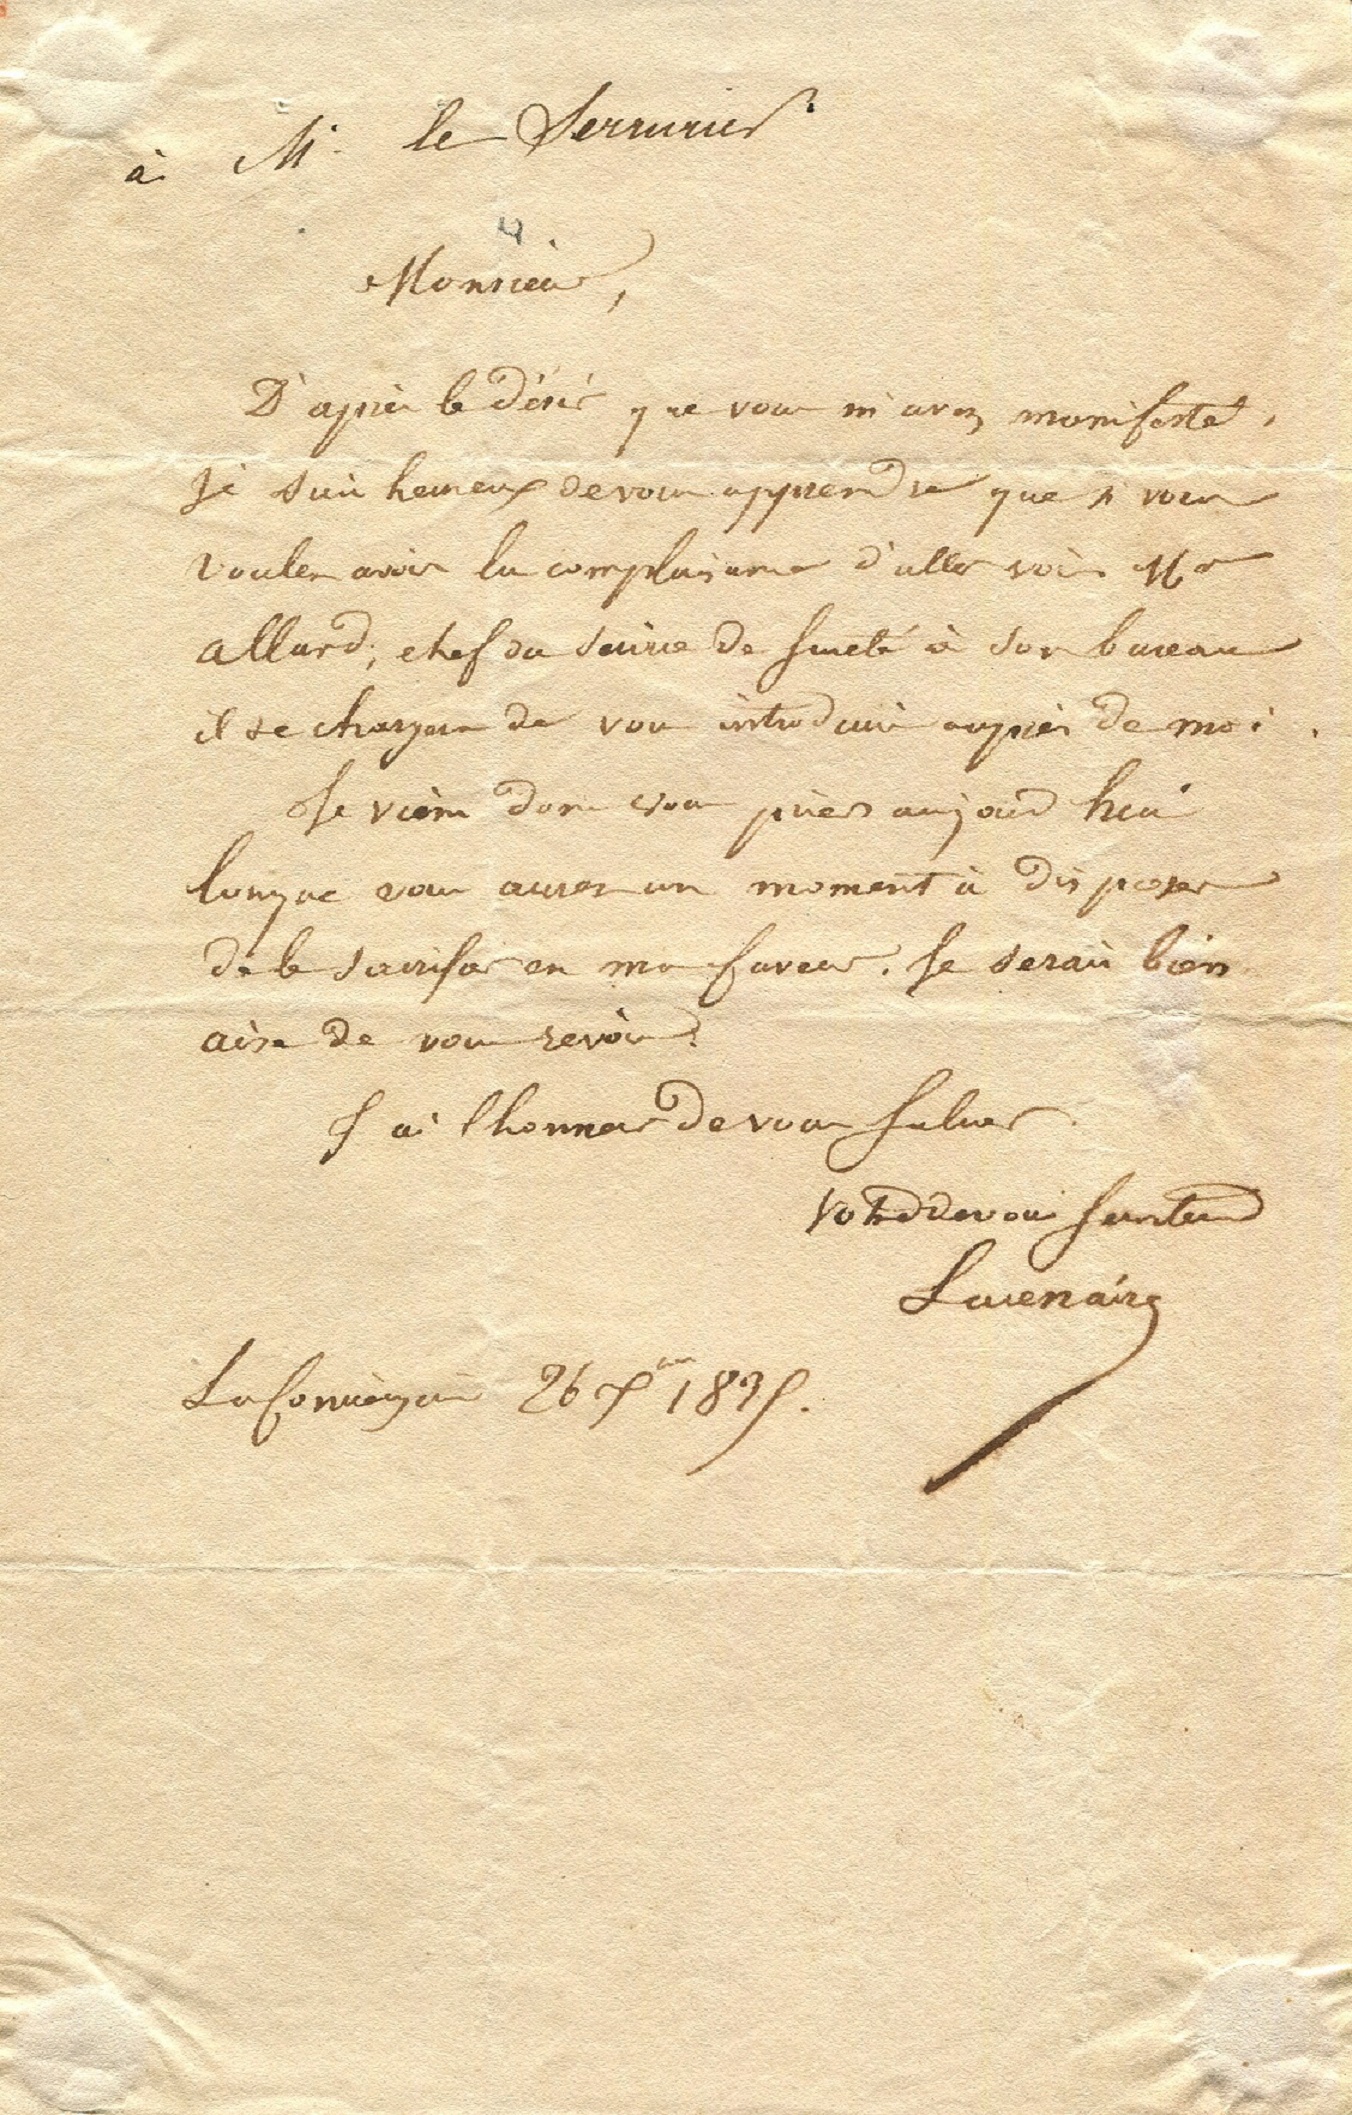 à Mr. le Serrurier
Monsieur,
D'après le désir que vous m'avez manifesté,
je suis heureux de vous apprendre que si vous
voulez avoir la complaisance d'aller voir Mr
Allard, chef du service de sureté à son bureau
il se chargera de vous introduire auprès de moi.
Je viens donc vous prier aujourd'hui
lorsque vous aurez un moment à disposer
de le sacrifier en ma faveur. Je serais bien
aise de vous revoir.
J'ai l'honneur de vous saluer
Votre dévoué serviteur
Lacenaire
La Conciergerie 26 Xbre 1835.